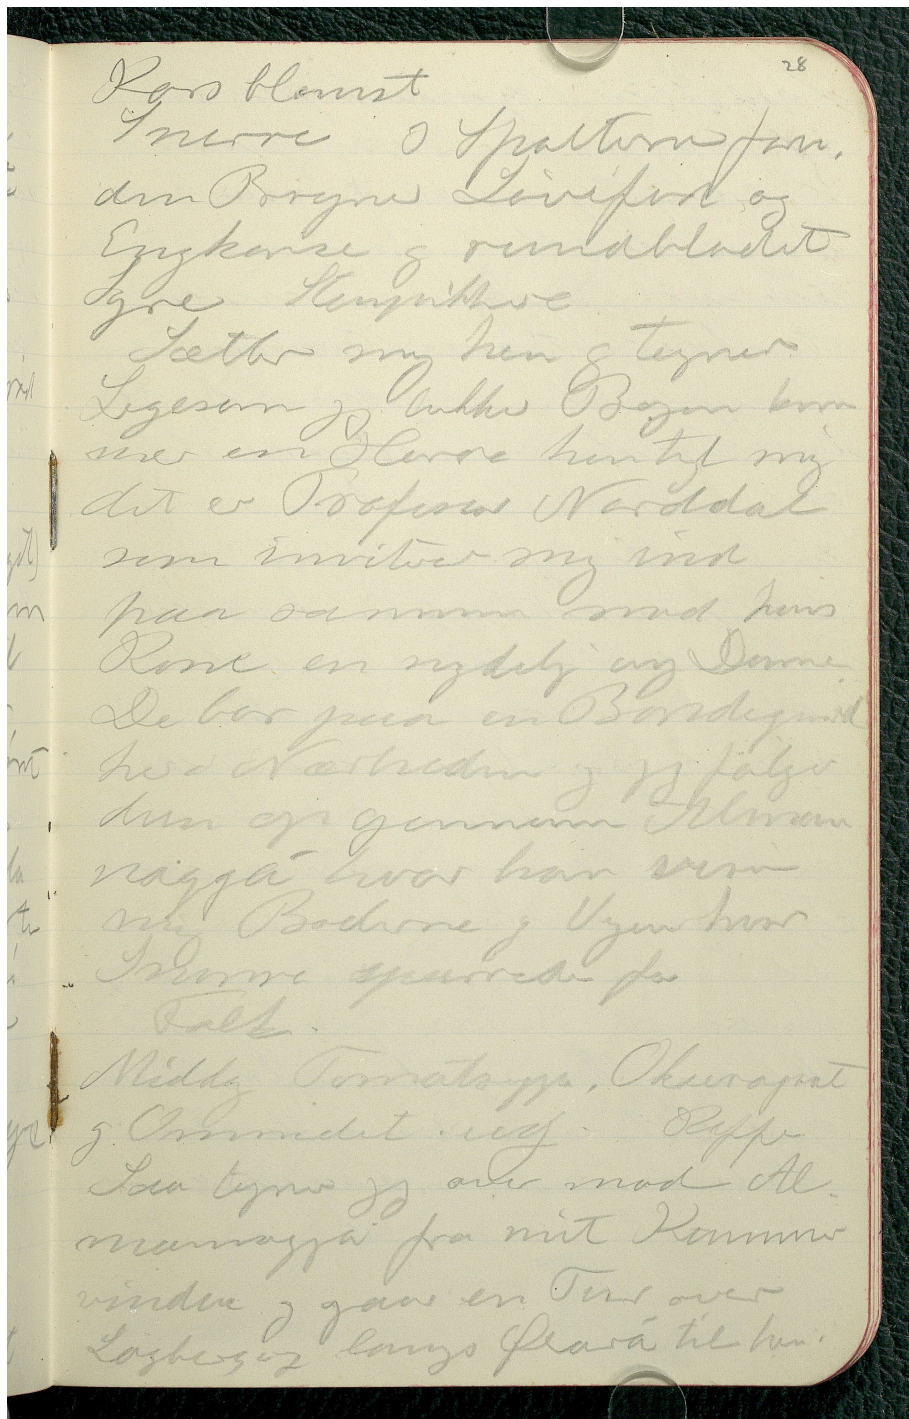 28
Korsblomst
Snerre I Spalterne fan-
den Bregne Løvefod og
Engkarse og rundbladet
Syre Stenpikkere
Sætter mig hen og tegner
Ligesom jeg lukker Bogen kom
mer en Herre hen til mig
det er Profesor Norddal
som inviterer mig ind
paa sammen med hans
Kone en nydelig ung Dame.
De bor paa en Bondegaard
her i Nærheden og jeg følger
dem op gennem Alman
nagjá hvor han viser
mig Boderne og Vejen hvor
Snorre spærrede for
Folk.
Middag Tomatsuppe, Oksera
g Ommelet. Kaffe
Saa tegner jeg over mod Al-
mannagjá fra mit Kammer
vindue og gaar en Tur over
Lögberg og langs Øxará til